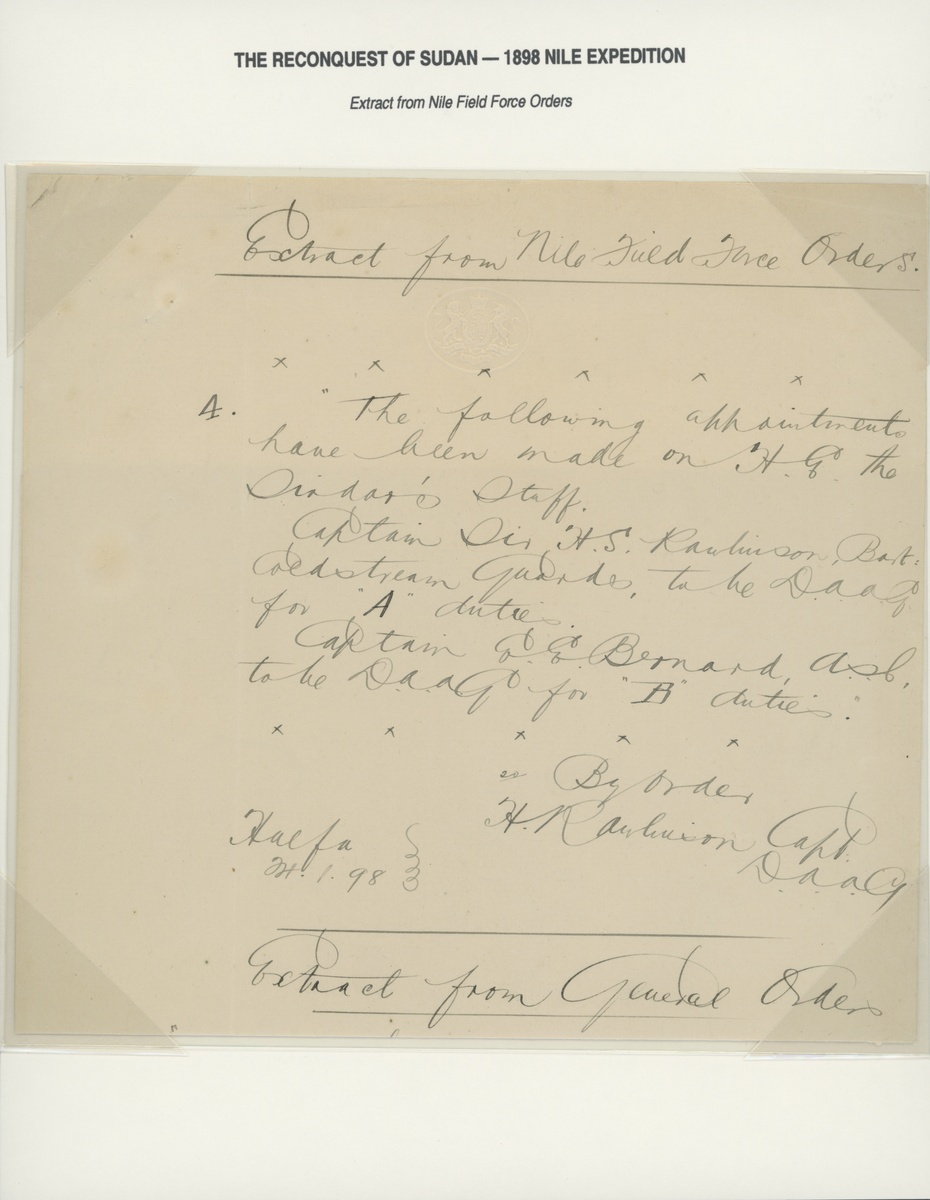 THE RECONQUEST OF SUDAN — 1898 NILE EXPEDITION
Extract from Nile Field Force Orders
Extract from Nile Field Force Orders.
x x x x x x
4. "The following appointments
have been made on H.E. the
Sirdar's Staff.
Captain Sir H.S. Rawlinson, Bart:
Coldstream Guards, to be D.a.a.G.
for "A" duties.
Captain E.E. Bernard, A.S.C,
to be D.a.a.G for "B" duties."
x x x x x
By Order
H. Rawlinson Capt.
D.a.a.G
Halfa
1.98
Extract from General Orders